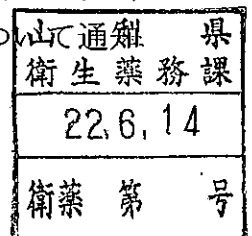 ついて通知
山梨県
衛生薬務課
22.6.14
衛薬第 号